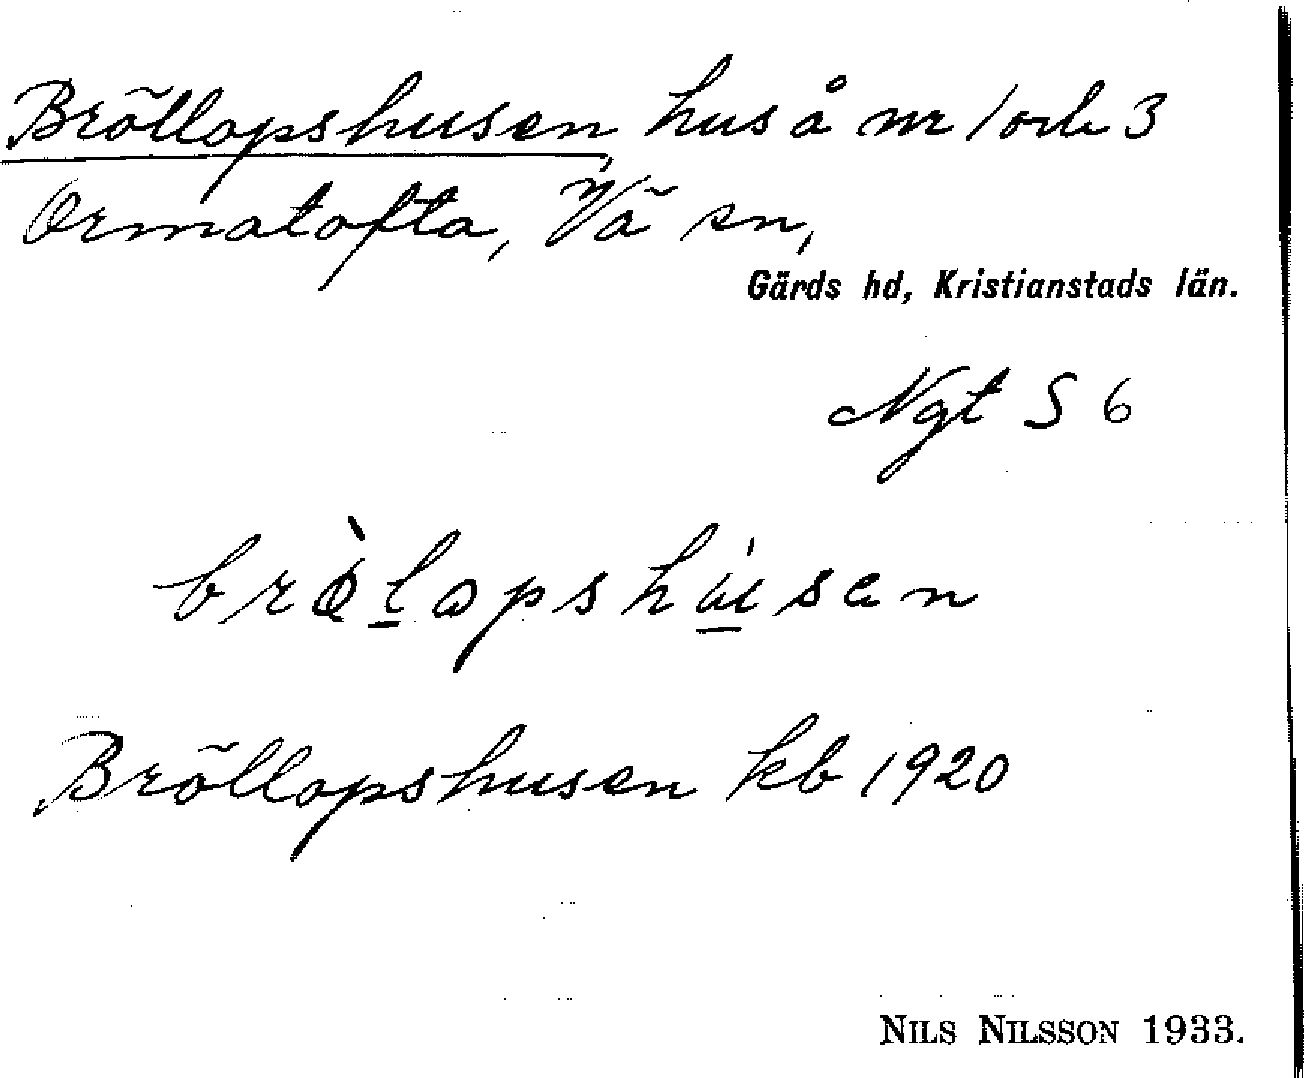 Bröllopshusen, hus å nr 1 och 3
Ormatofta, Vä sn,
Gärds hd, Kristianstads län.
Ngt S 6
brø̀l̠apshu̠ı́sen
Bröllopshusen kb 1920
NILS NILSSON 1933.